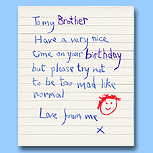 To my Brother
Have a very nice
time on your birthday
but please try not
to be too mad like
normal
Love from me
x